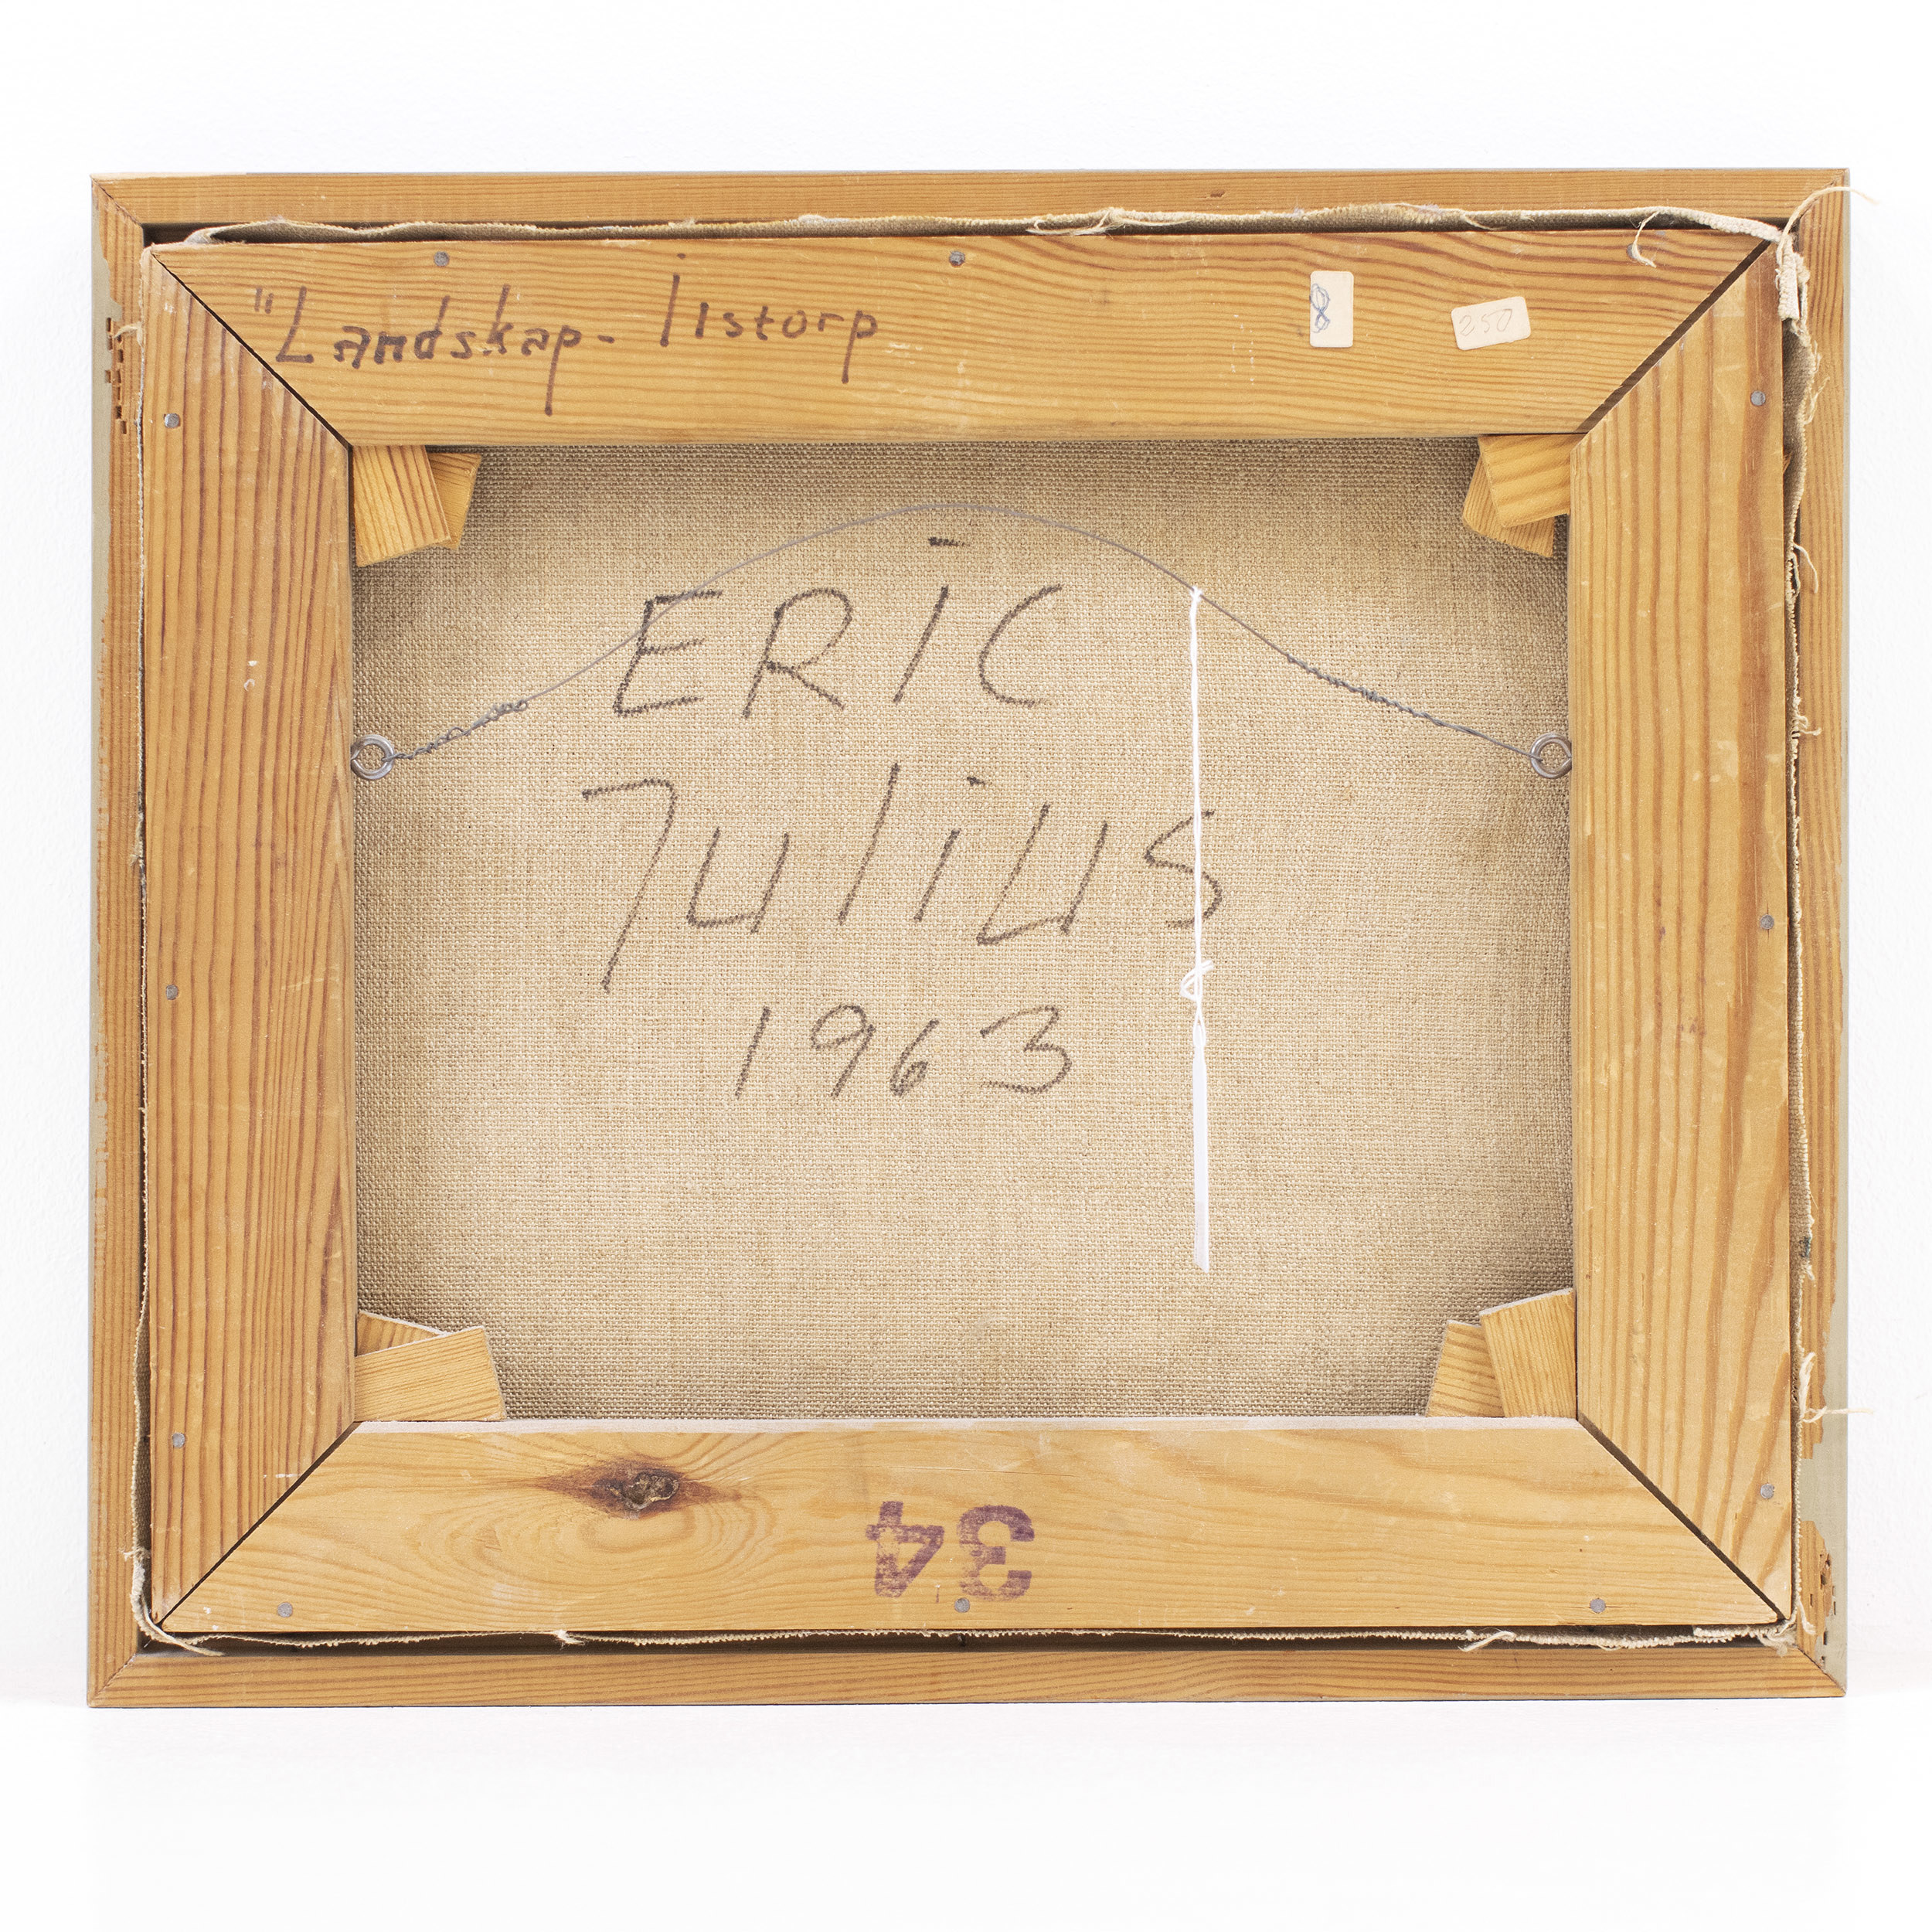 "Landskap - Listorp
8
250
ERIC
Julius
1963
34